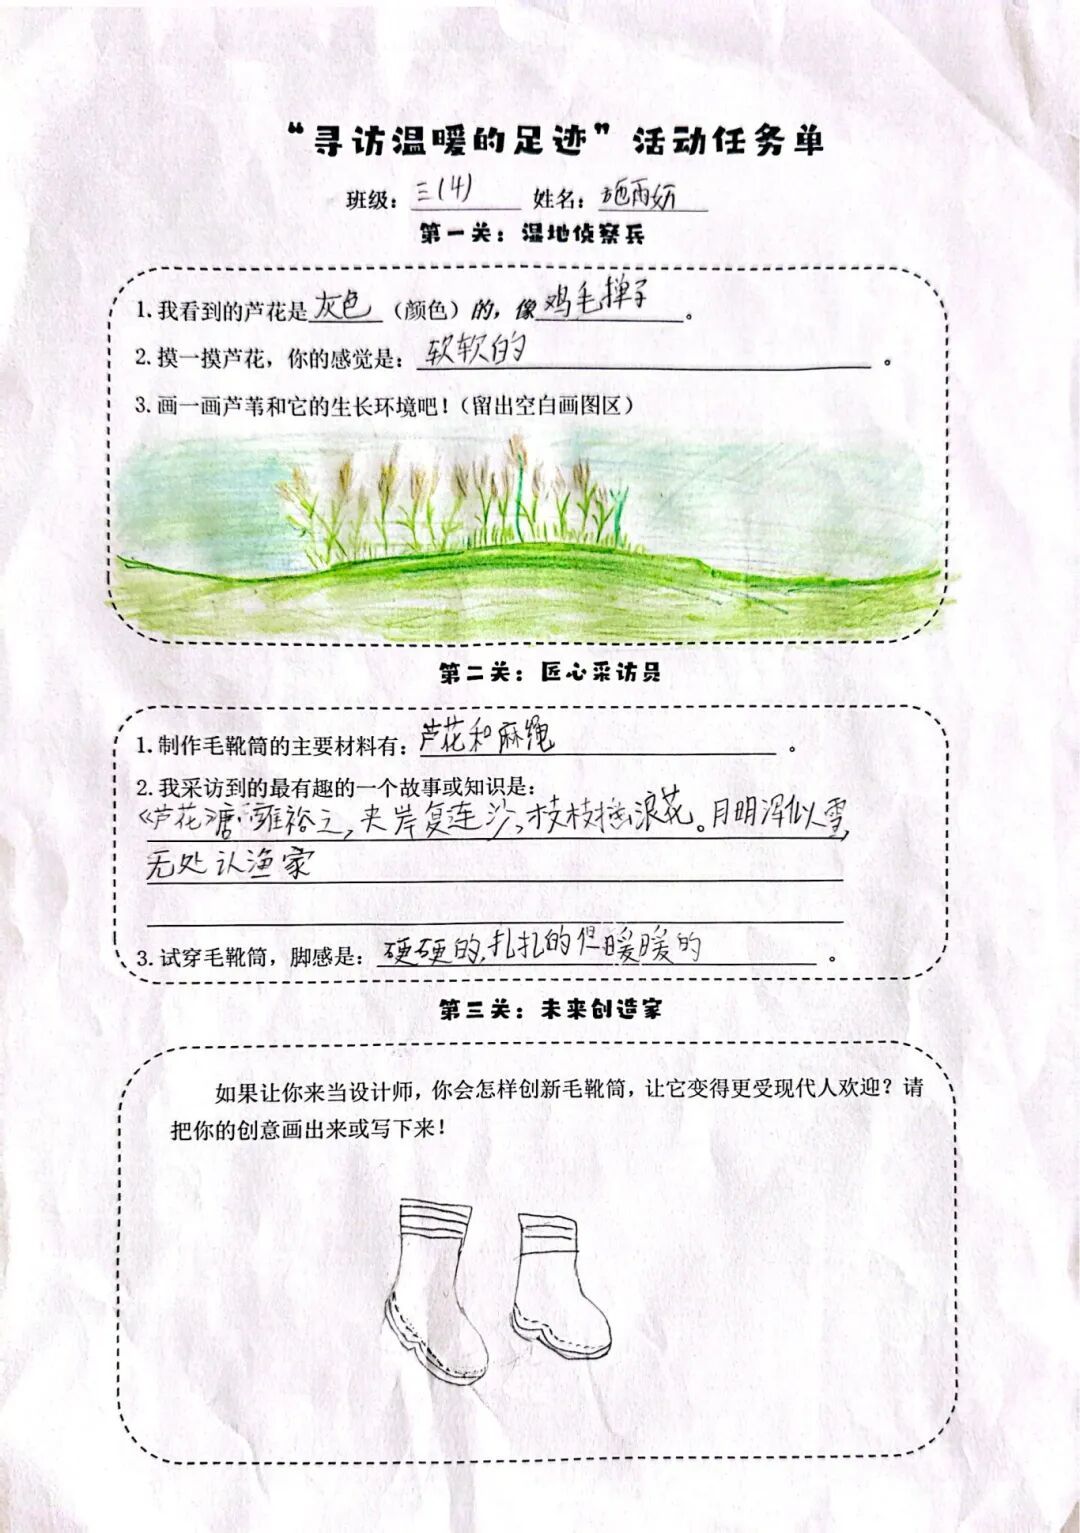 “寻访温暖的足迹”活动任务单
班级：三(4) 姓名：施雨妡
第一关：湿地侦察兵
1.我看到的芦花是灰色（颜色）的，像鸡毛掸子。
2.摸一摸芦花，你的感觉是：软软的。
3.画一画芦苇和它的生长环境吧！（留出空白画图区）
第二关：匠心采访员
1.制作毛靴筒的主要材料有：芦花和麻绳。
2.我采访到的最有趣的一个故事或知识是：
《芦花》唐·雍裕之，夹岸复连沙，枝枝摇浪花。月明浑似雪，
无处认渔家
3.试穿毛靴筒，脚感是：硬硬的，扎扎的但暖暖的。
第三关：未来创造家
如果让你来当设计师，你会怎样创新毛靴筒，让它变得更受现代人欢迎？请
把你的创意画出来或写下来！